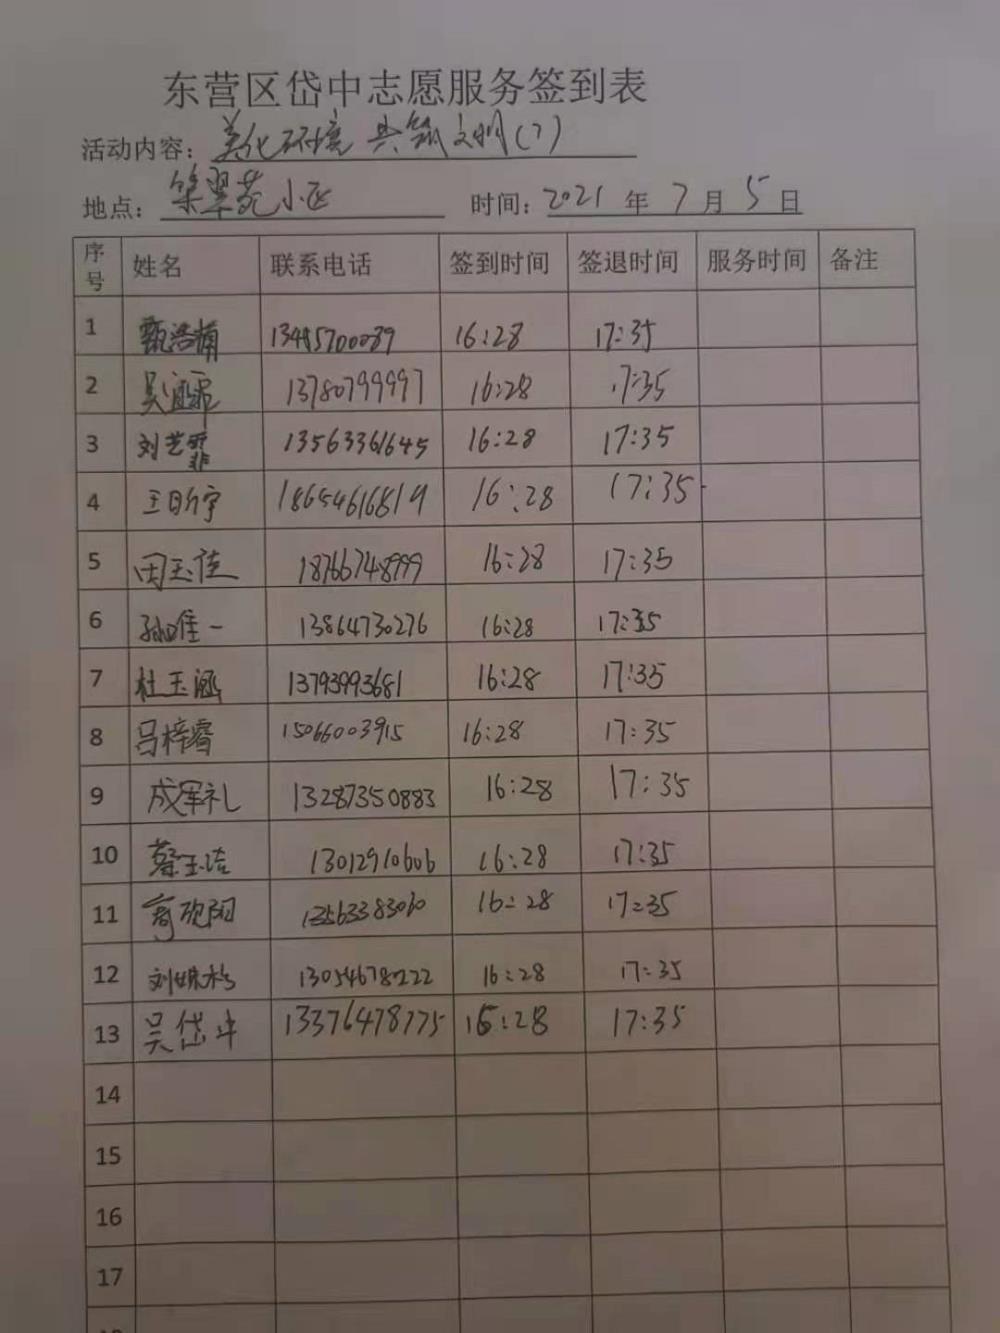 东营区岱中志愿服务签到表
活动内容：美化环境 共筑文明(7)
地点：集翠苑小区 时间：2021年7月5日
序号 姓名 联系电话 签到时间 签退时间 服务时间 备注
1 甄浩楠 13485700089 16:28 17:35
2 吴 13780799997 16:28 17:35
3 刘艺霏 13563361645 16:28 17:35
4 王昕宇 18654616819 16:28 17:35
5 田玉佳 18766748999 16:28 17:35
6 孙唯一 13864730276 16:28 17:35
7 杜玉涵 13793993681 16:28 17:35
8 吕梓睿 15066003915 16:28 17:35
9 成军礼 13287350883 16:28 17:35
10 蔡玉洁 13012910606 16:28 17:35
11 13563383060 16:28 17:35
12 刘姝杉 13054678222 16:28 17:35
13 吴岱斗 13376478775 16:28 17:35
14
15
16
17